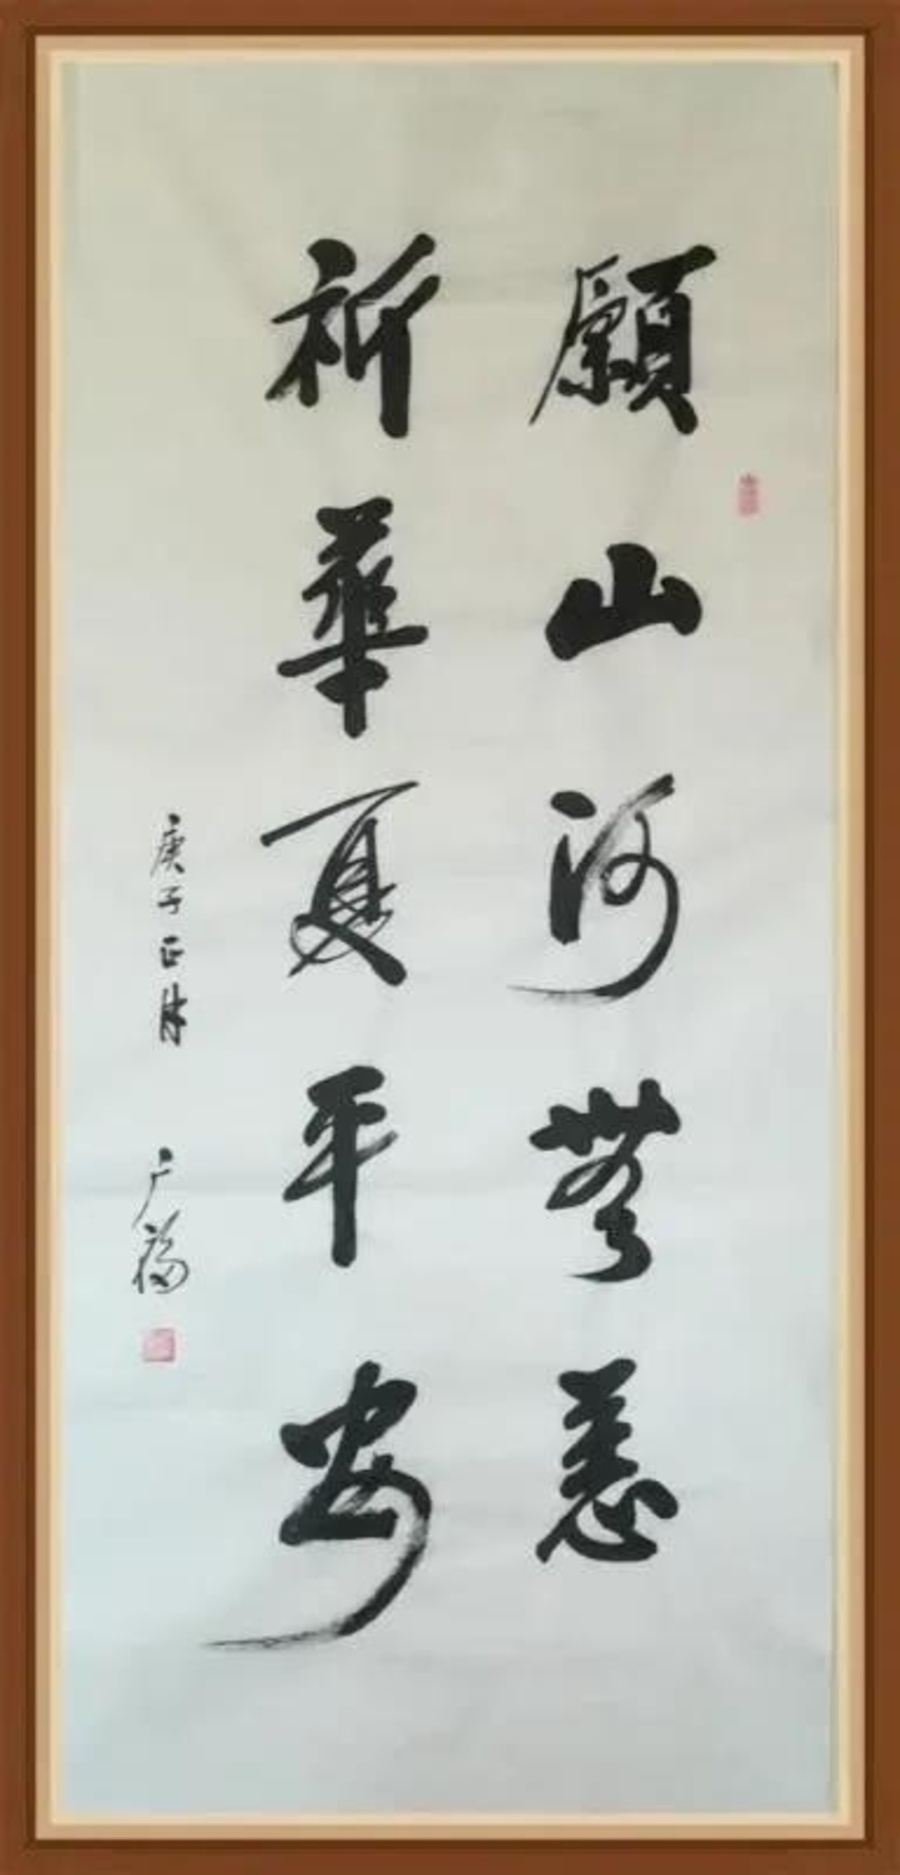 願山河無恙
祈華夏平安
庚子正月
广福